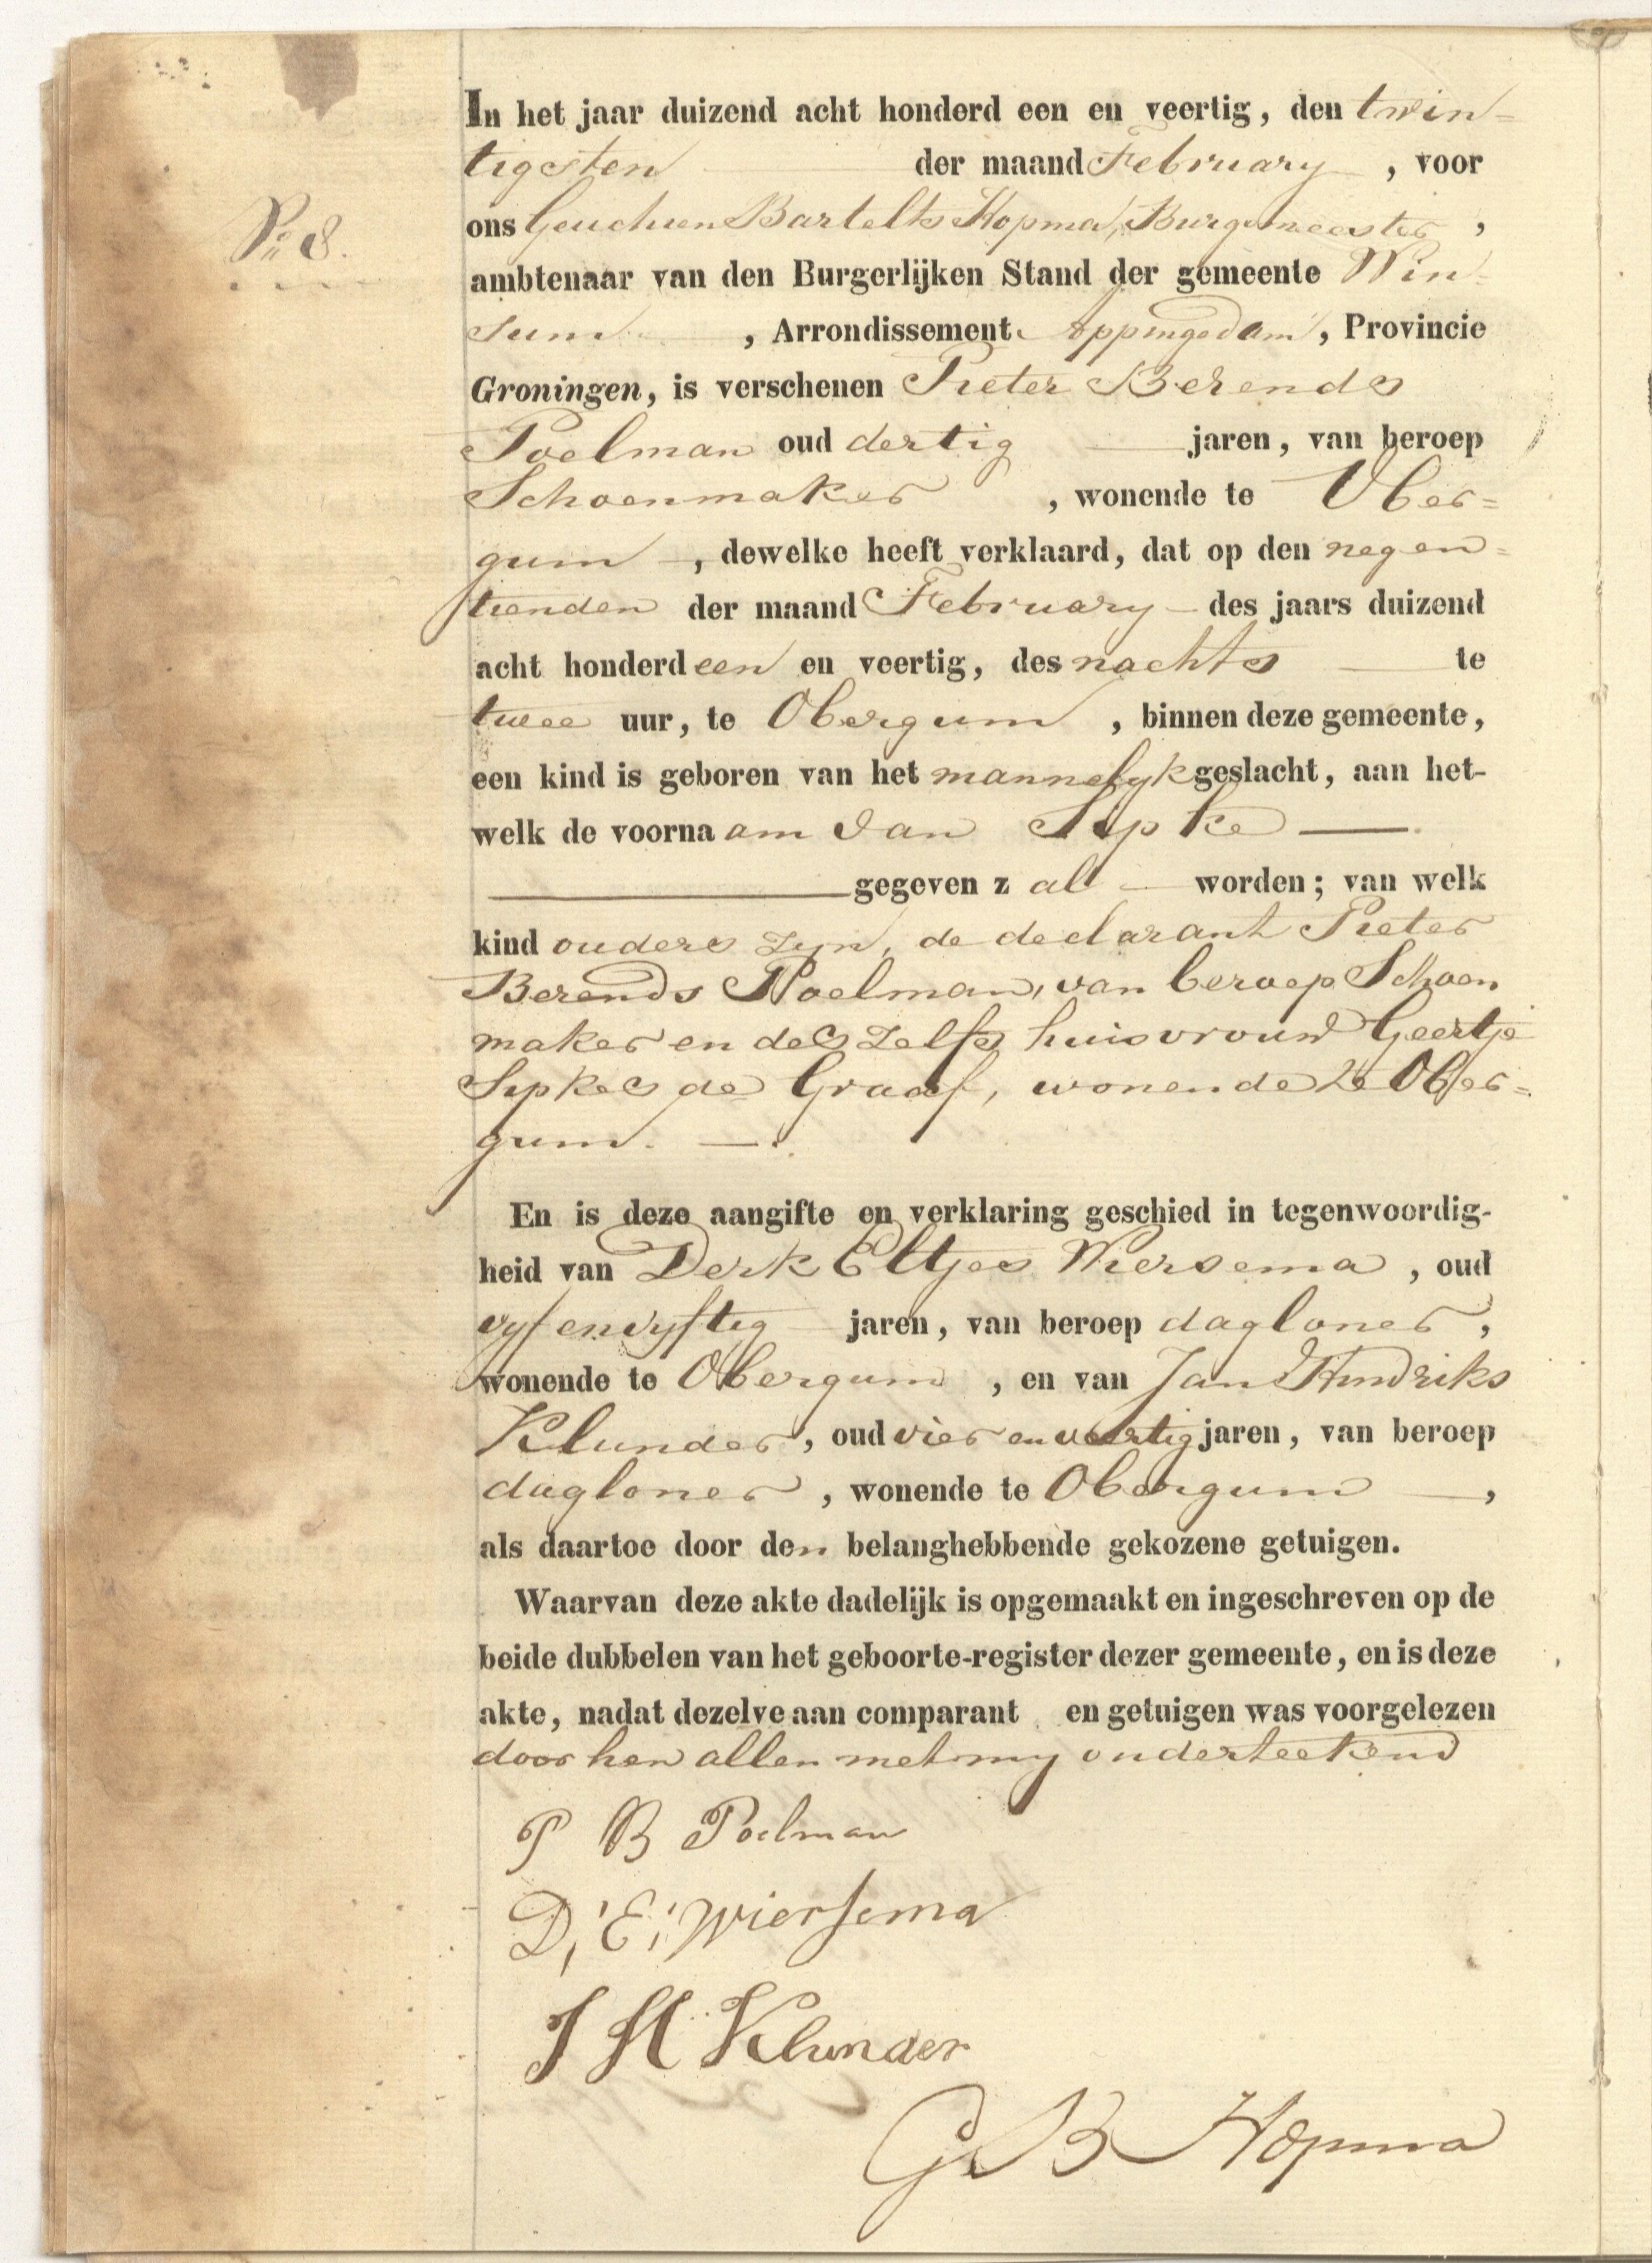 In het jaar duizend acht honderd een en veertig, den twin=
tigsten der maand February, voor
No 8.
ons Geuchien Bartelts Hopma, Burgemeester,
ambtenaar van den Burgerlijken Stand der gemeente Win=
sum, Arrondissement Appingedam, Provincie
Groningen, is verschenen Pieter Berends
Poelman oud dertig jaren, van beroep
Schoenmaker, wonende te Ober=
gum, dewelke heeft verklaard, dat op den negen=
tienden der maand February des jaars duizend
acht honderd een en veertig, des nachts te
twee uur, te Obergum, binnen deze gemeente,
een kind is geboren van het mannelyk geslacht, aan het-
welk de voornaam Jan Sipke
gegeven zal worden; van welk
kind ouders zyn, de declarant Pieter
Berends Poelman, van beroep Schoen
maker en deszelfs huisvrouw Geertje
Sipkes de Graaf, wonende te Ober=
gum.
En is deze aangifte en verklaring geschied in tegenwoordig-
heid van Derk Eltjes Wiersema, oud
vyf en vyftig jaren, van beroep dagloner,
wonende te Obergum, en van Jan Hindriks
Klunder, oud vier en veertig jaren, van beroep
dagloner, wonende te Obergum,
als daartoe door den belanghebbende gekozene getuigen.
Waarvan deze akte dadelijk is opgemaakt en ingeschreven op de
beide dubbelen van het geboorte-register dezer gemeente, en is deze
akte, nadat dezelve aan comparant en getuigen was voorgelezen
door hen allen met my onderteekend
P B Poelman
D, E, Wiersema
J H Klunder
G B Hopma